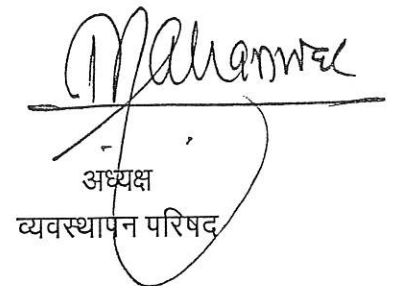 अध्यक्ष
व्यवस्थापन परिषद